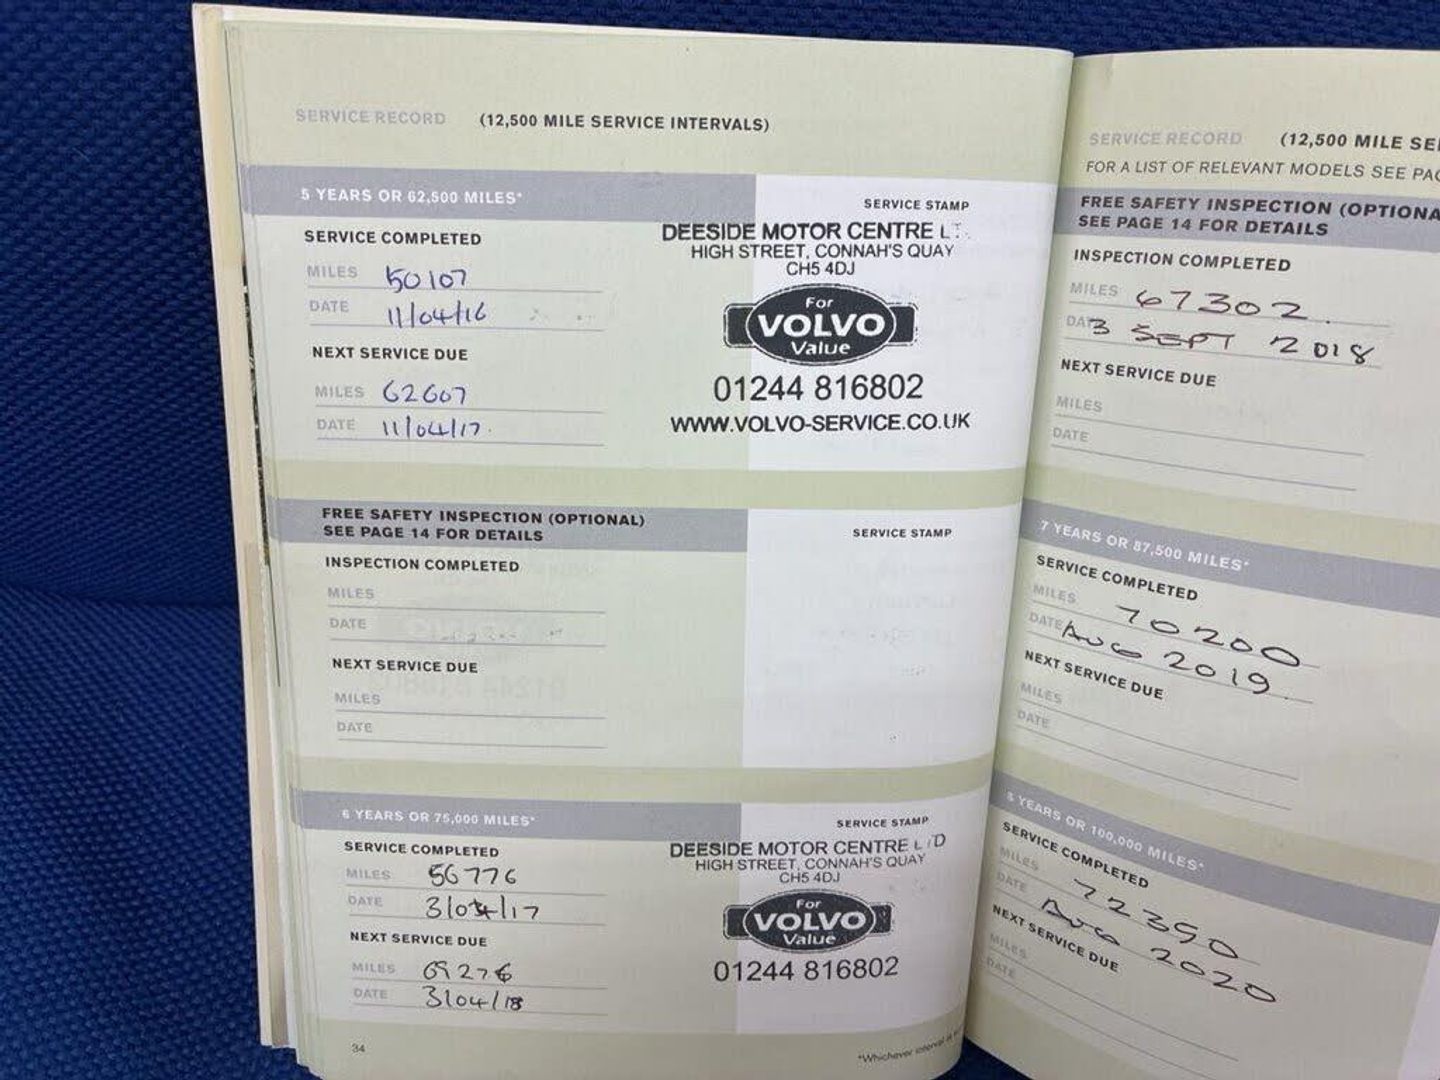 SERVICE RECORD (12,500 MILE SERVICE INTERVALS)
5 YEARS OR 62,500 MILES*
SERVICE STAMP
SERVICE COMPLETED
MILES 50107
DATE 11/04/16
NEXT SERVICE DUE
MILES 62607
DATE 11/04/17
DEESIDE MOTOR CENTRE
HIGH STREET, CONNAH'S QUAY
CH5 4DJ
For
VOLVO
Value
01244 816802
WWW.VOLVO-SERVICE.CO.UK
FREE SAFETY INSPECTION (OPTIONAL)
SEE PAGE 14 FOR DETAILS
SERVICE STAMP
INSPECTION COMPLETED
MILES
DATE
NEXT SERVICE DUE
MILES
DATE
6 YEARS OR 75,000 MILES*
SERVICE STAMP
SERVICE COMPLETED
MILES 56776
DATE 3/04/17
NEXT SERVICE DUE
MILES 69276
DATE 3/04/18
DEESIDE MOTOR CENTRE LTD
HIGH STREET, CONNAH'S QUAY
CH5 4DJ
For
VOLVO
Value
01244 816802
34
*Whichever interval is
SERVICE RECORD (12,500 MILE SE
FOR A LIST OF RELEVANT MODELS SEE PAG
FREE SAFETY INSPECTION (OPTIONA
SEE PAGE 14 FOR DETAILS
INSPECTION COMPLETED
MILES 67302
DATE 3 SEPT 2018
NEXT SERVICE DUE
MILES
DATE
7 YEARS OR 87,500 MILES*
SERVICE COMPLETED
MILES 70200
DATE AUG 2019
NEXT SERVICE DUE
MILES
DATE
8 YEARS OR 100,000 MILES*
SERVICE COMPLETED
MILES 72390
DATE AUG 2020
NEXT SERVICE DUE
MILES
DATE